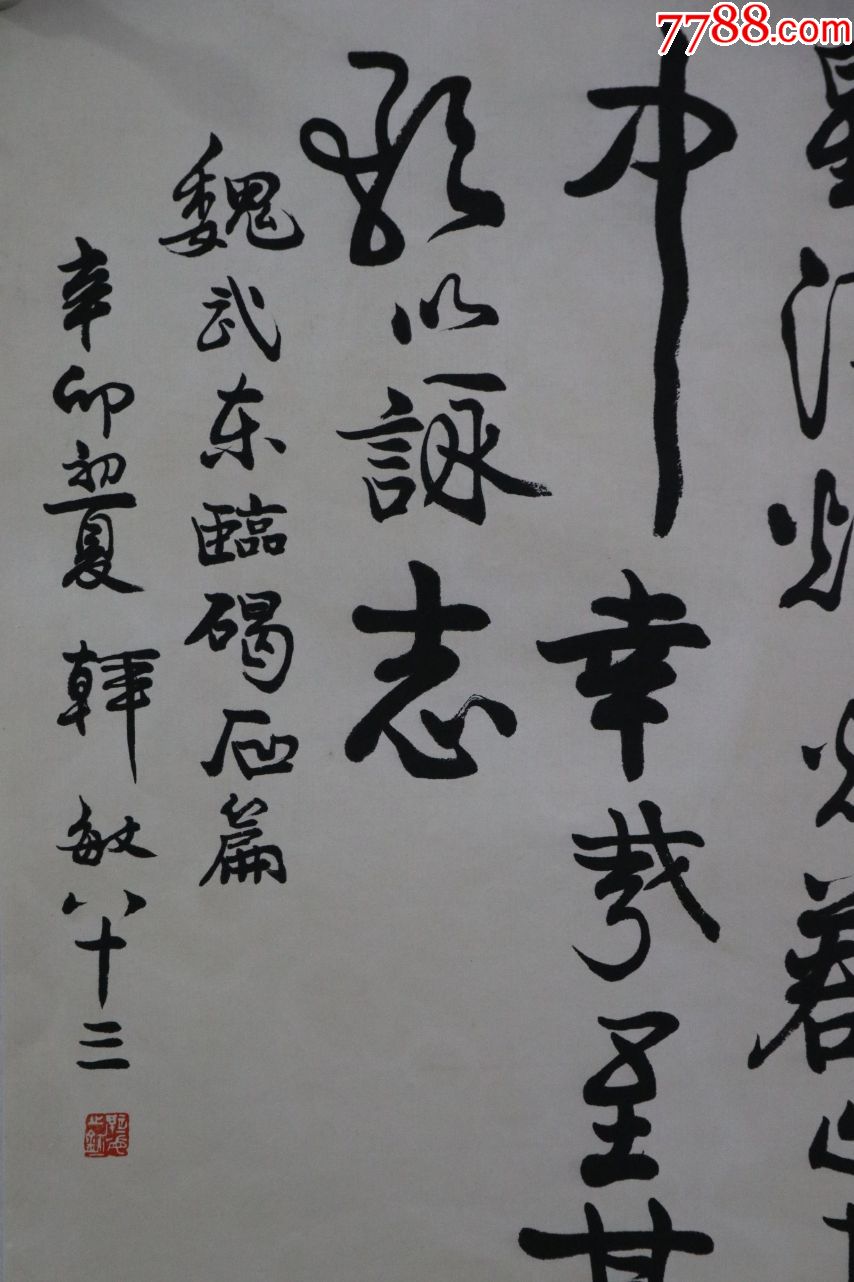 7788.com
星漢燦爛若出其
中幸哉至甚
歌以詠志
魏武东臨碣石篇
辛卯初夏 韩敏八十三